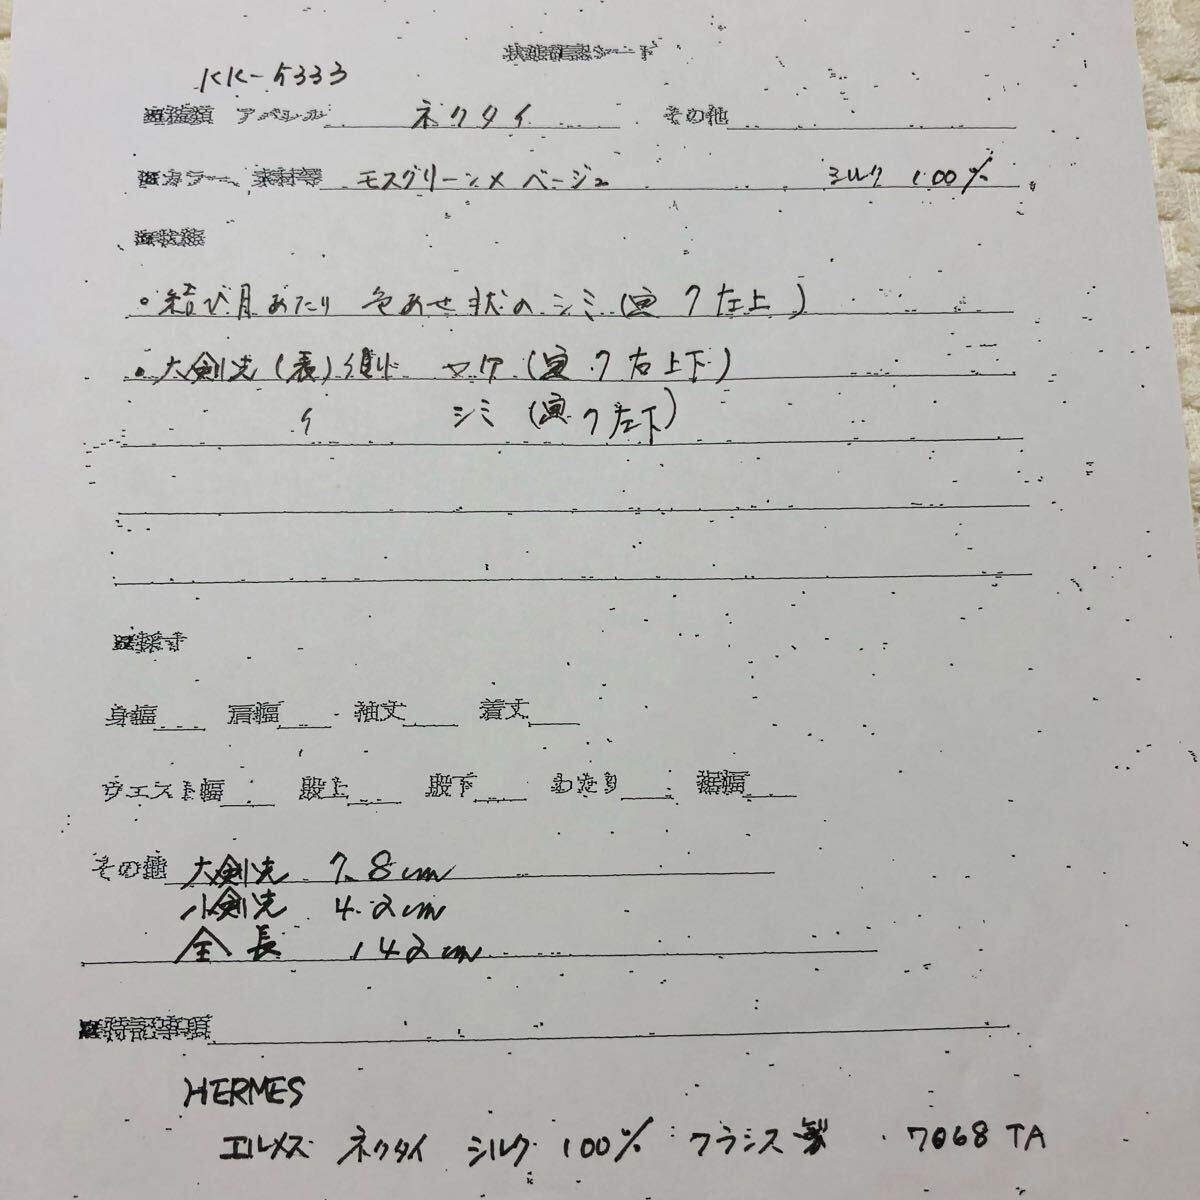 状態確認シート
KK-5333
■種類 アパレル ネクタイ その他
■カラー、素材等 モスグリーン×ベージュ シルク 100%
■状態
・結び目あたり 色あせ状のシミ(画7左上)
・大剣先(表) マケ(画7右上下)
〃 シミ(画7左下)
■採寸
身幅 肩幅 袖丈 着丈
ウエスト幅 股上 股下 わたり 裾幅
その他 大剣先 7.8cm
小剣先 4.2cm
全長 142cm
■特記事項
HERMES
エルメス ネクタイ シルク 100% フランス製 7068 TA